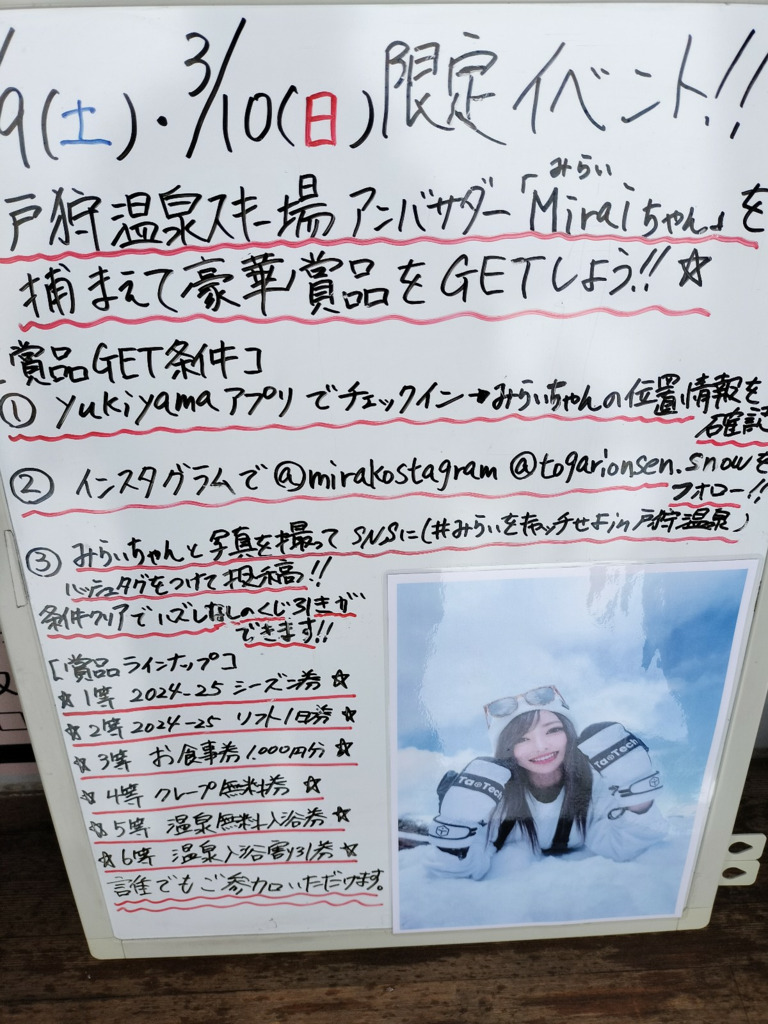 /9(土)・3/10(日)限定イベント!!
みらい
戸狩温泉スキー場アンバサダー「Miraiちゃん」を
捕まえて豪華賞品をGETしよう!!☆
[賞品GET条件]
① yukiyamaアプリでチェックイン→みらいちゃんの位置情報を
確認
② インスタグラムで@mirakostagram @togarionsen.snowを
フォロー!!
③ みらいちゃんと写真を撮ってSNSに(#みらいをキャッチせよin戸狩温泉)
ハッシュタグをつけて投稿!!
条件クリアでハズレなしのくじ引きが
できます!!
[賞品ラインナップ]
☆1等 2024-25 シーズン券☆
☆2等 2024-25 リフト1日券☆
☆3等 お食事券1.000円分☆
☆4等 クレープ無料券☆
☆5等 温泉無料入浴券☆
☆6等 温泉入浴割引券☆
誰でもご参加いただけます。
Ta●Tech
Ta●Tech